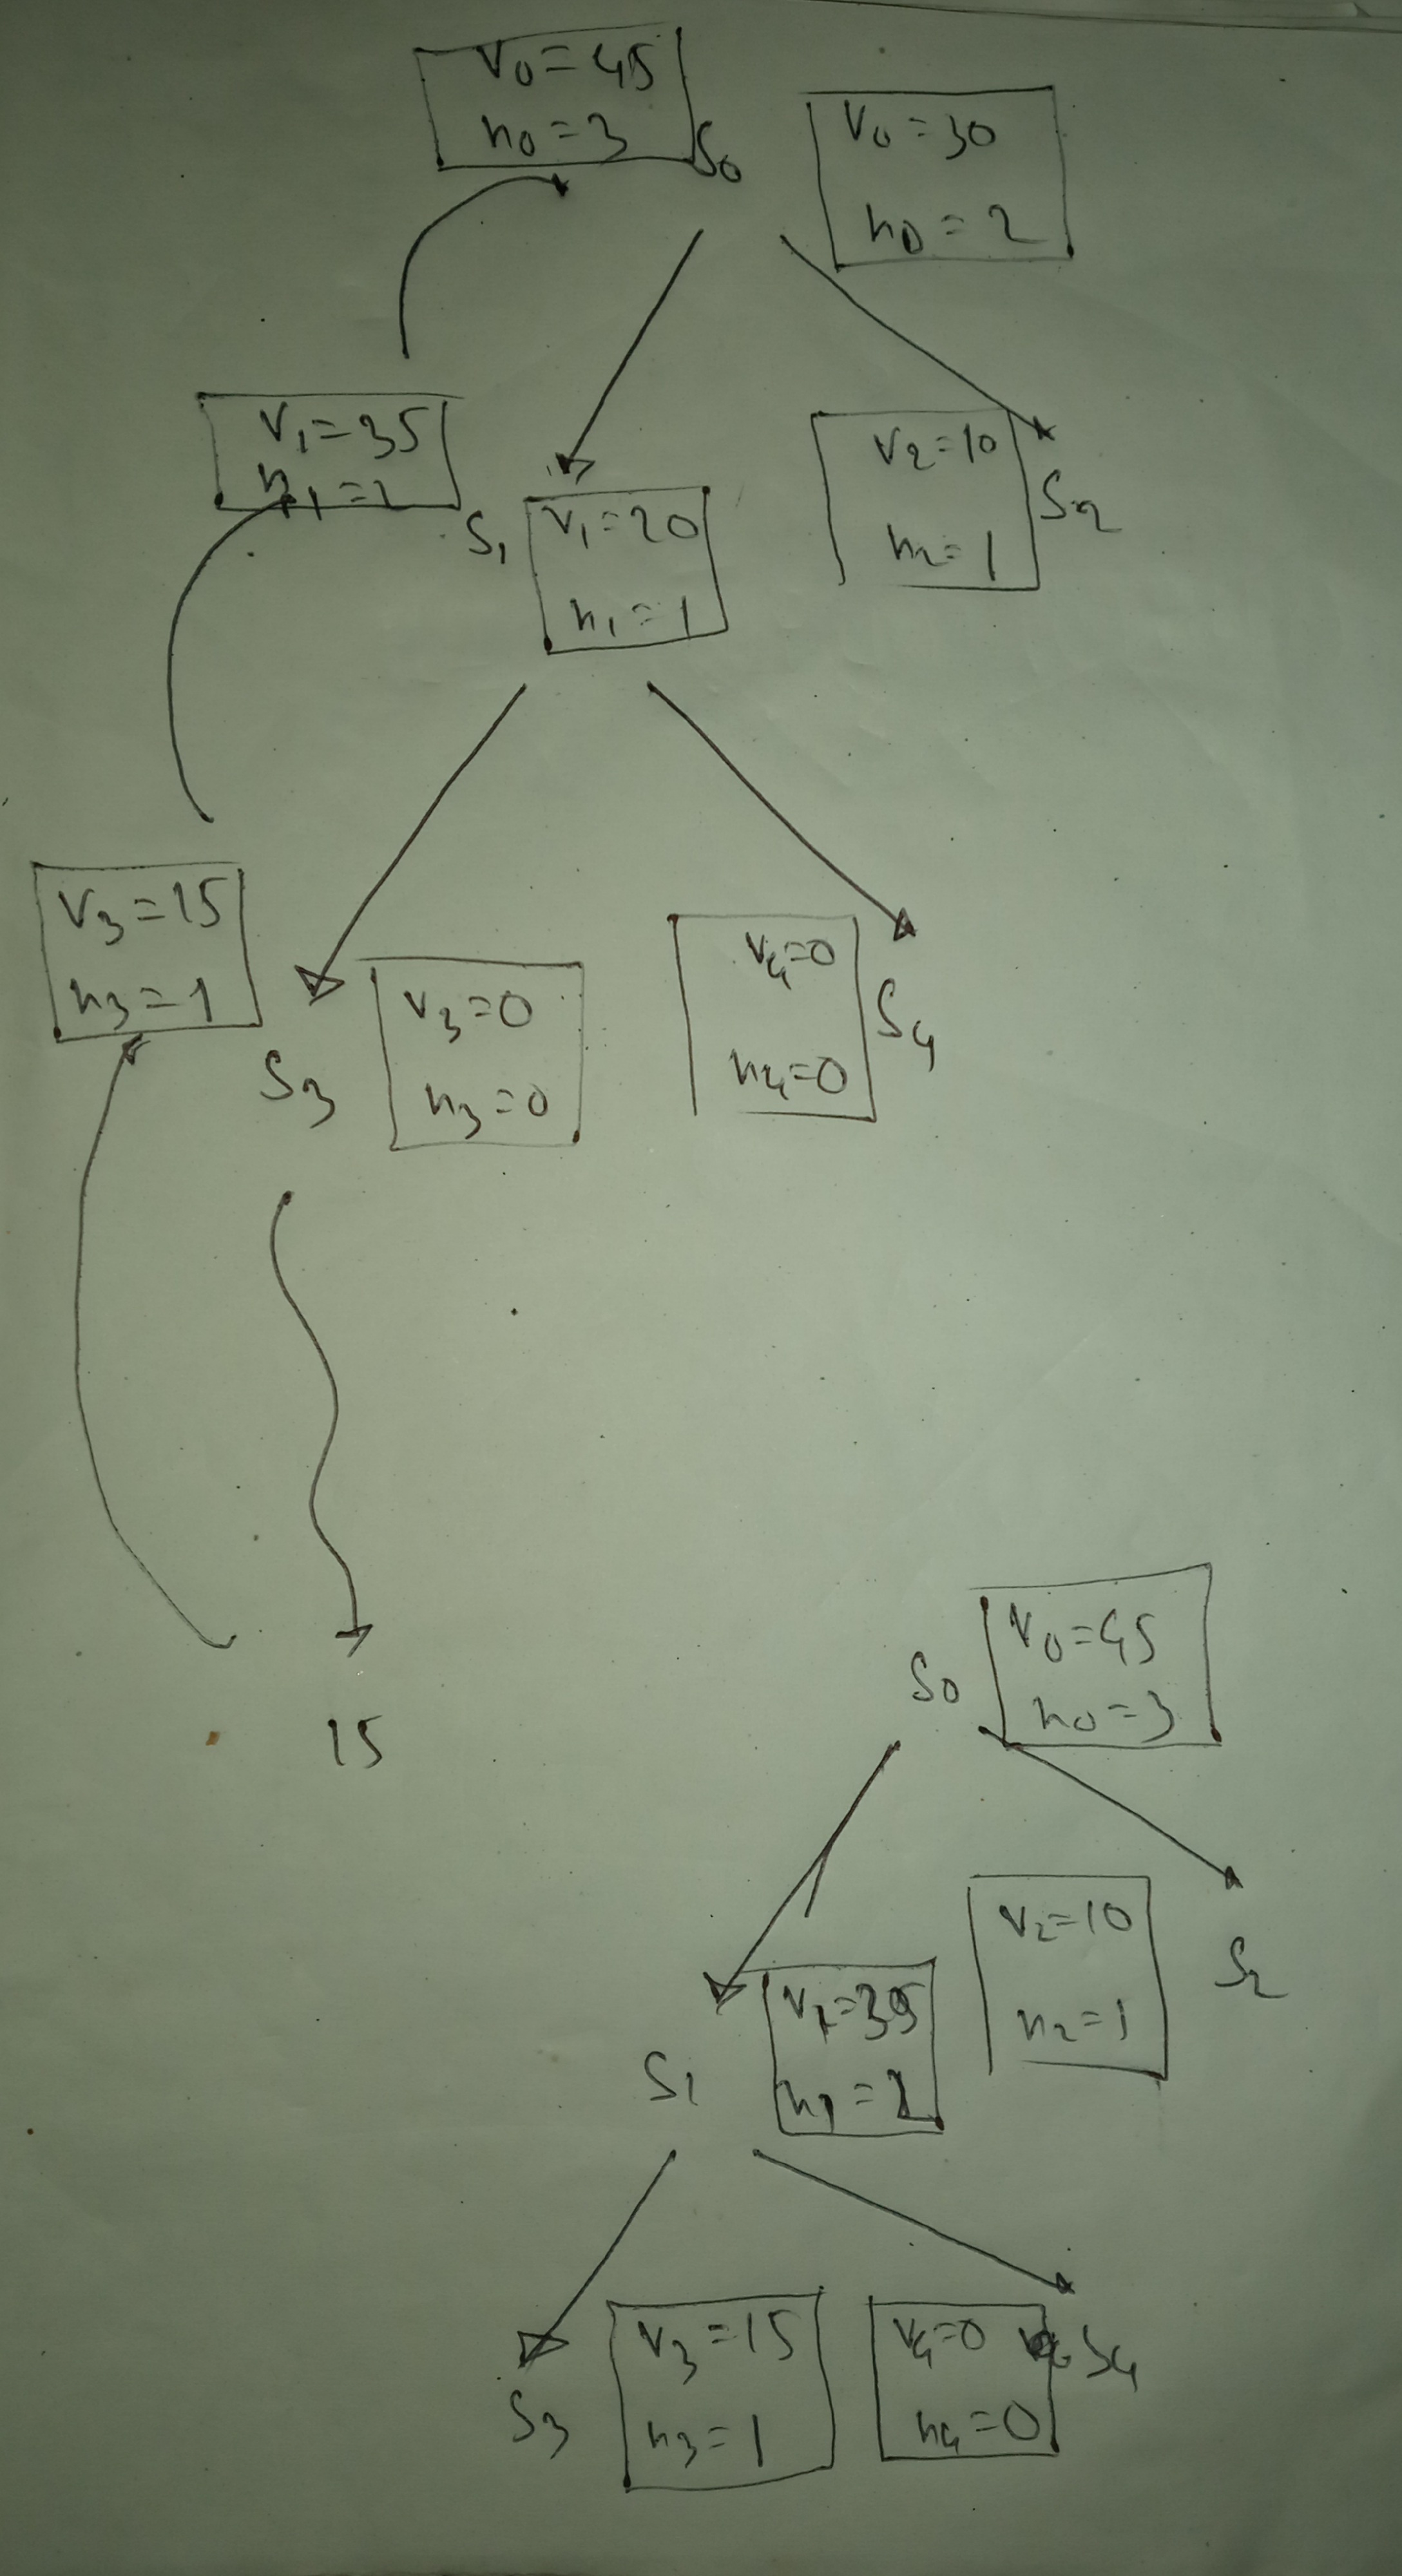 V₀=45
n₀=3
S₀
V₀=30
n₀=2
V₁=35
n₁=2
S₁
V₁=20
n₁=1
V₂=10
n₂=1
S₂
V₃=15
n₃=1
S₃
V₃=0
n₃=0
V₄=0
n₄=0
S₄
15
S₀
V₀=45
n₀=3
S₁
V₁=35
n₁=2
V₂=10
n₂=1
S₂
S₃
V₃=15
n₃=1
V₄=0
n₄=0
S₄